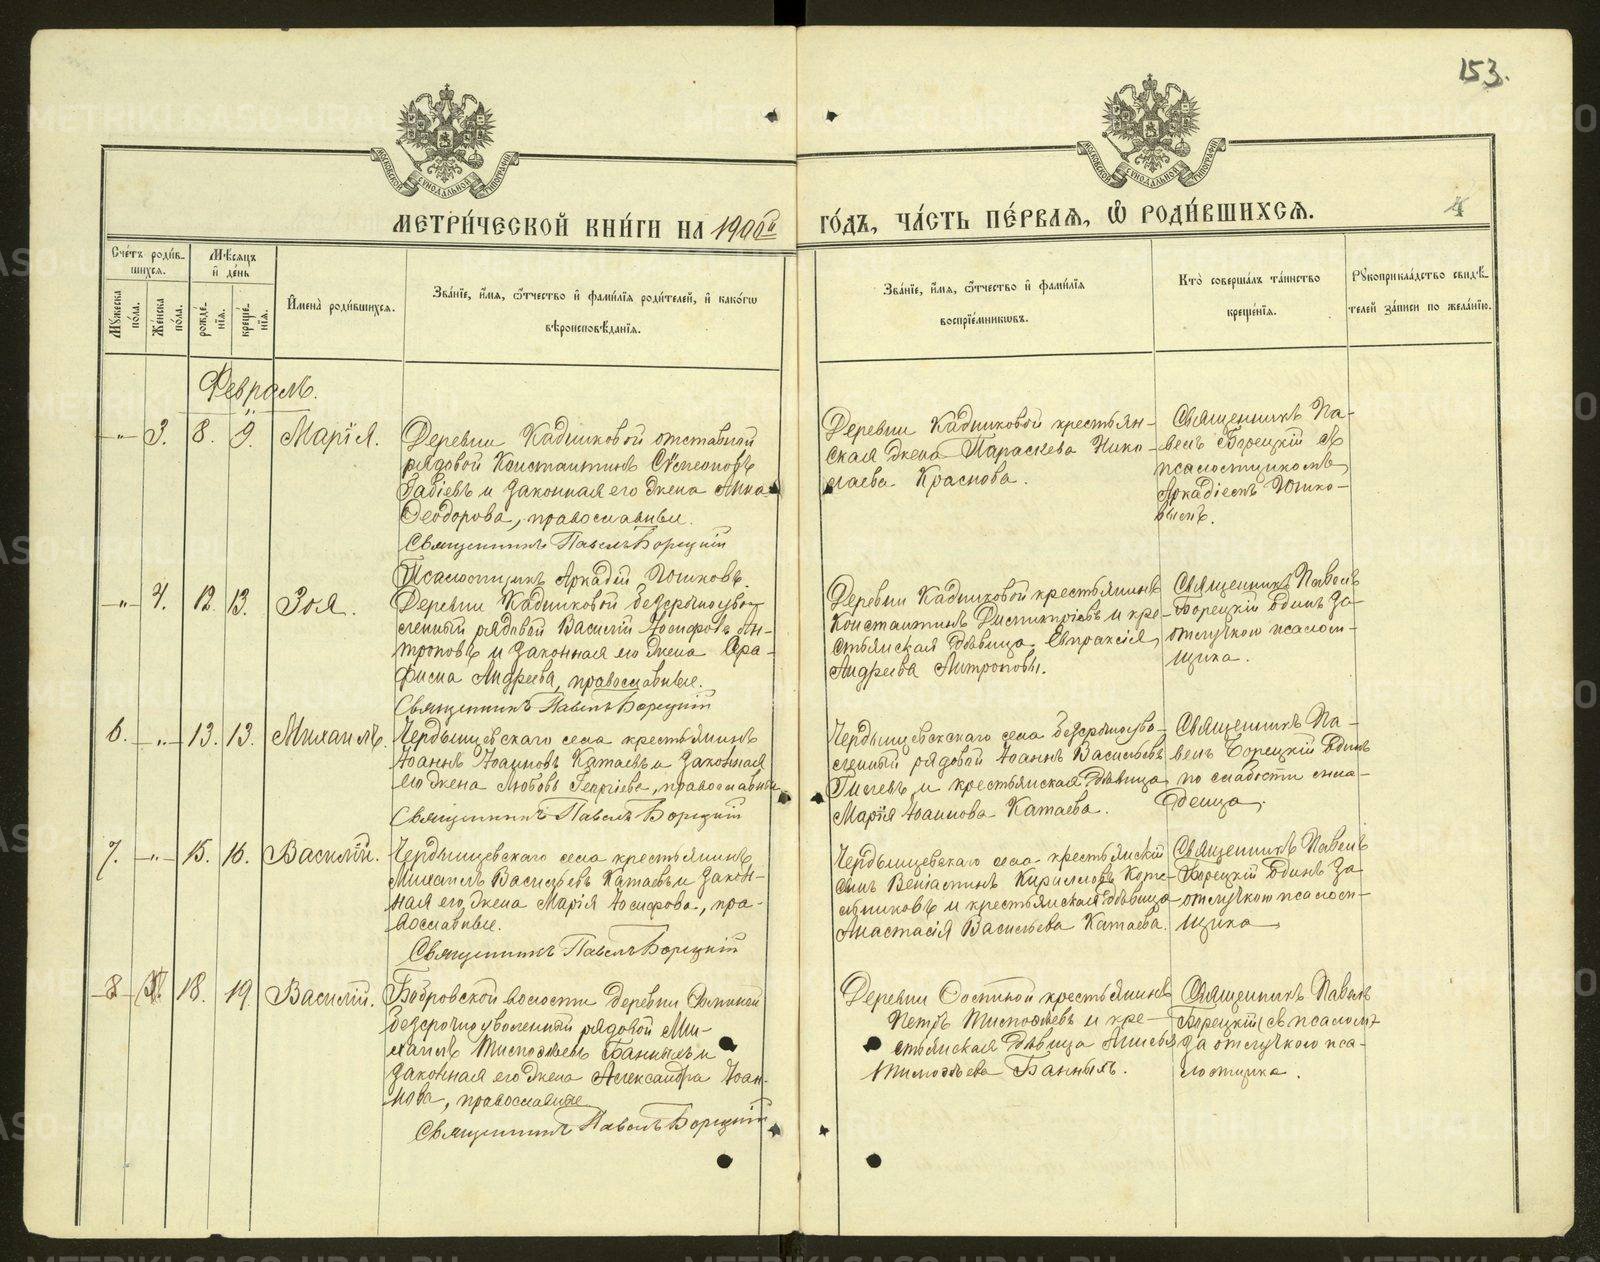 153.
МЕТРИ́ЧЕСКОЙ КНИ́ГИ НА 1900й
ГО́ДЪ, ЧА́СТЬ ПЕ́РВАѦ, Ѡ҆ РОДИ́ВШИХСѦ.
Сче́тъ роди́в-
шихсѧ.
Мꙋ́жеска по́ла.
Же́нска по́ла.
Мѣ́сѧцъ
и҆ де́нь
рожде́-
нїѧ.
креще́-
нїѧ.
И҆мена̀ роди́вшихсѧ.
Зва́нїе, и҆́мѧ, ѻ҆́тчество и҆ фами́лїѧ роди́телей, и҆ како́гѡ
вѣроисповѣ́данїѧ.
Зва́нїе, и҆́мѧ, ѻ҆́тчество и҆ фами́лїѧ
воспрїе́мникѡвъ.
Кто̀ соверша́лъ та́инство
креще́нїѧ.
Рꙋкоприкла́дство свидѣ́-
телей за́писи по жела́нїю.
Февраль.
-"- 3. 8. 9. Марія.
Деревни Кадниковой отставной
рядовой Константинъ Стефановъ
и законная его жена Анна
Ѳеодорова, православные.
Священникъ Павелъ Борецкій
Псаломщикъ Аркадій Юшковъ.
Деревни Кадниковой крестьян-
ская жена Параскева Нико-
лаева Краснова.
Священникъ Па-
велъ Борецкій съ
псаломщикомъ
Аркадіемъ Юшко-
вымъ.
-"- 4. 12. 13. Зоя.
Деревни Кадниковой безсрочноуво-
ленный рядовой Василій Іосифовъ Ан-
троповъ и законная его жена Сера-
фима Андреева, православные.
Священникъ Павелъ Борецкій
Деревни Кадниковой крестьянинъ
Константинъ и кре-
стьянская дѣвица Евпраксія
Андреева Антропова.
Священникъ Павелъ
Борецкій одинъ за
отлучкою псалом-
щика.
6. -"- 13. 13. Михаилъ.
Чердынцевскаго села крестьянинъ
Іоаннъ Іоанновъ Катаевъ и законная
его жена Любовь Георгіева, православные
Священникъ Павелъ Борецкій
Чердынцевскаго села безсрочноуво-
ленный рядовой Іоаннъ Васильевъ
и крестьянская дѣвица
Марія Іоаннова Катаева.
Священникъ Па-
велъ Борецкій одинъ
по слабости мла-
денца.
7. -"- 15. 16. Василій.
Чердынцевскаго села крестьянинъ
Михаилъ Васильевъ Катаевъ и закон-
ная его жена Марія Іосифова, пра-
вославные.
Священникъ Павелъ Борецкій
Чердынцевскаго села крестьянскій
сынъ Веніаминъ Кирилловъ Коте-
льниковъ и крестьянская дѣвица
Анастасія Васильева Катаева.
Священникъ Павелъ
Борецкій одинъ за
отлучкою псалом-
щика
8 18. 19. Василій.
Бобровской волости деревни
безсрочноуволенный рядовой Ми-
хаилъ Тимоѳеевъ Банныхъ и
законная его жена Александра Іоан-
нова, православные
Священникъ Павелъ Борецкій
Деревни крестьянинъ
Петръ Тимоѳеевъ и кре-
стьянская дѣвица Анисья
Тимоѳеева Банныхъ.
Священникъ Павелъ
Борецкій
за отлучкою пса-
ломщика.